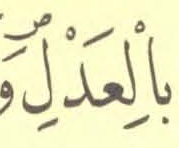 بِالْعَدْلِۖ وَ